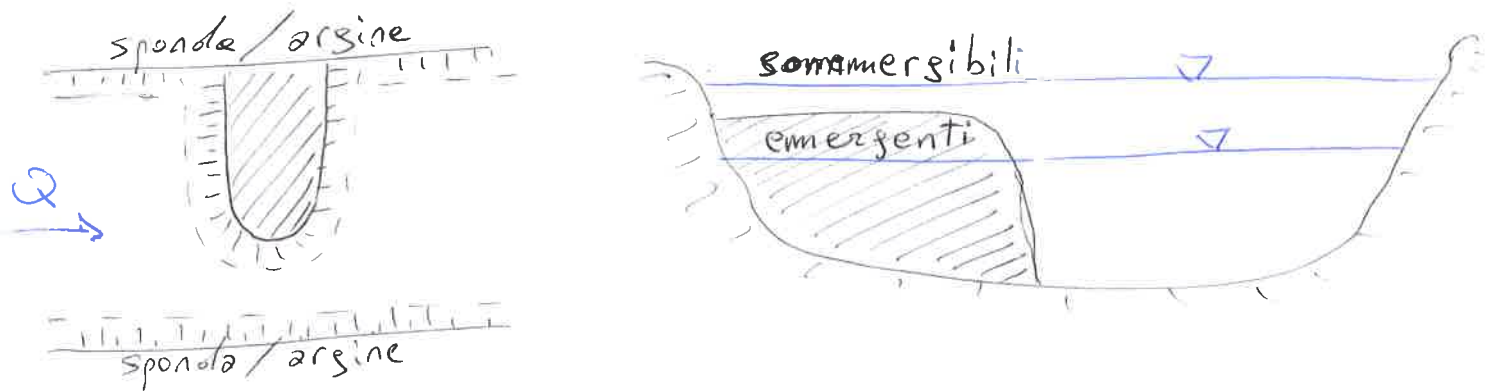 sponda / argine
Q
sponda / argine
sommergibili
emergenti